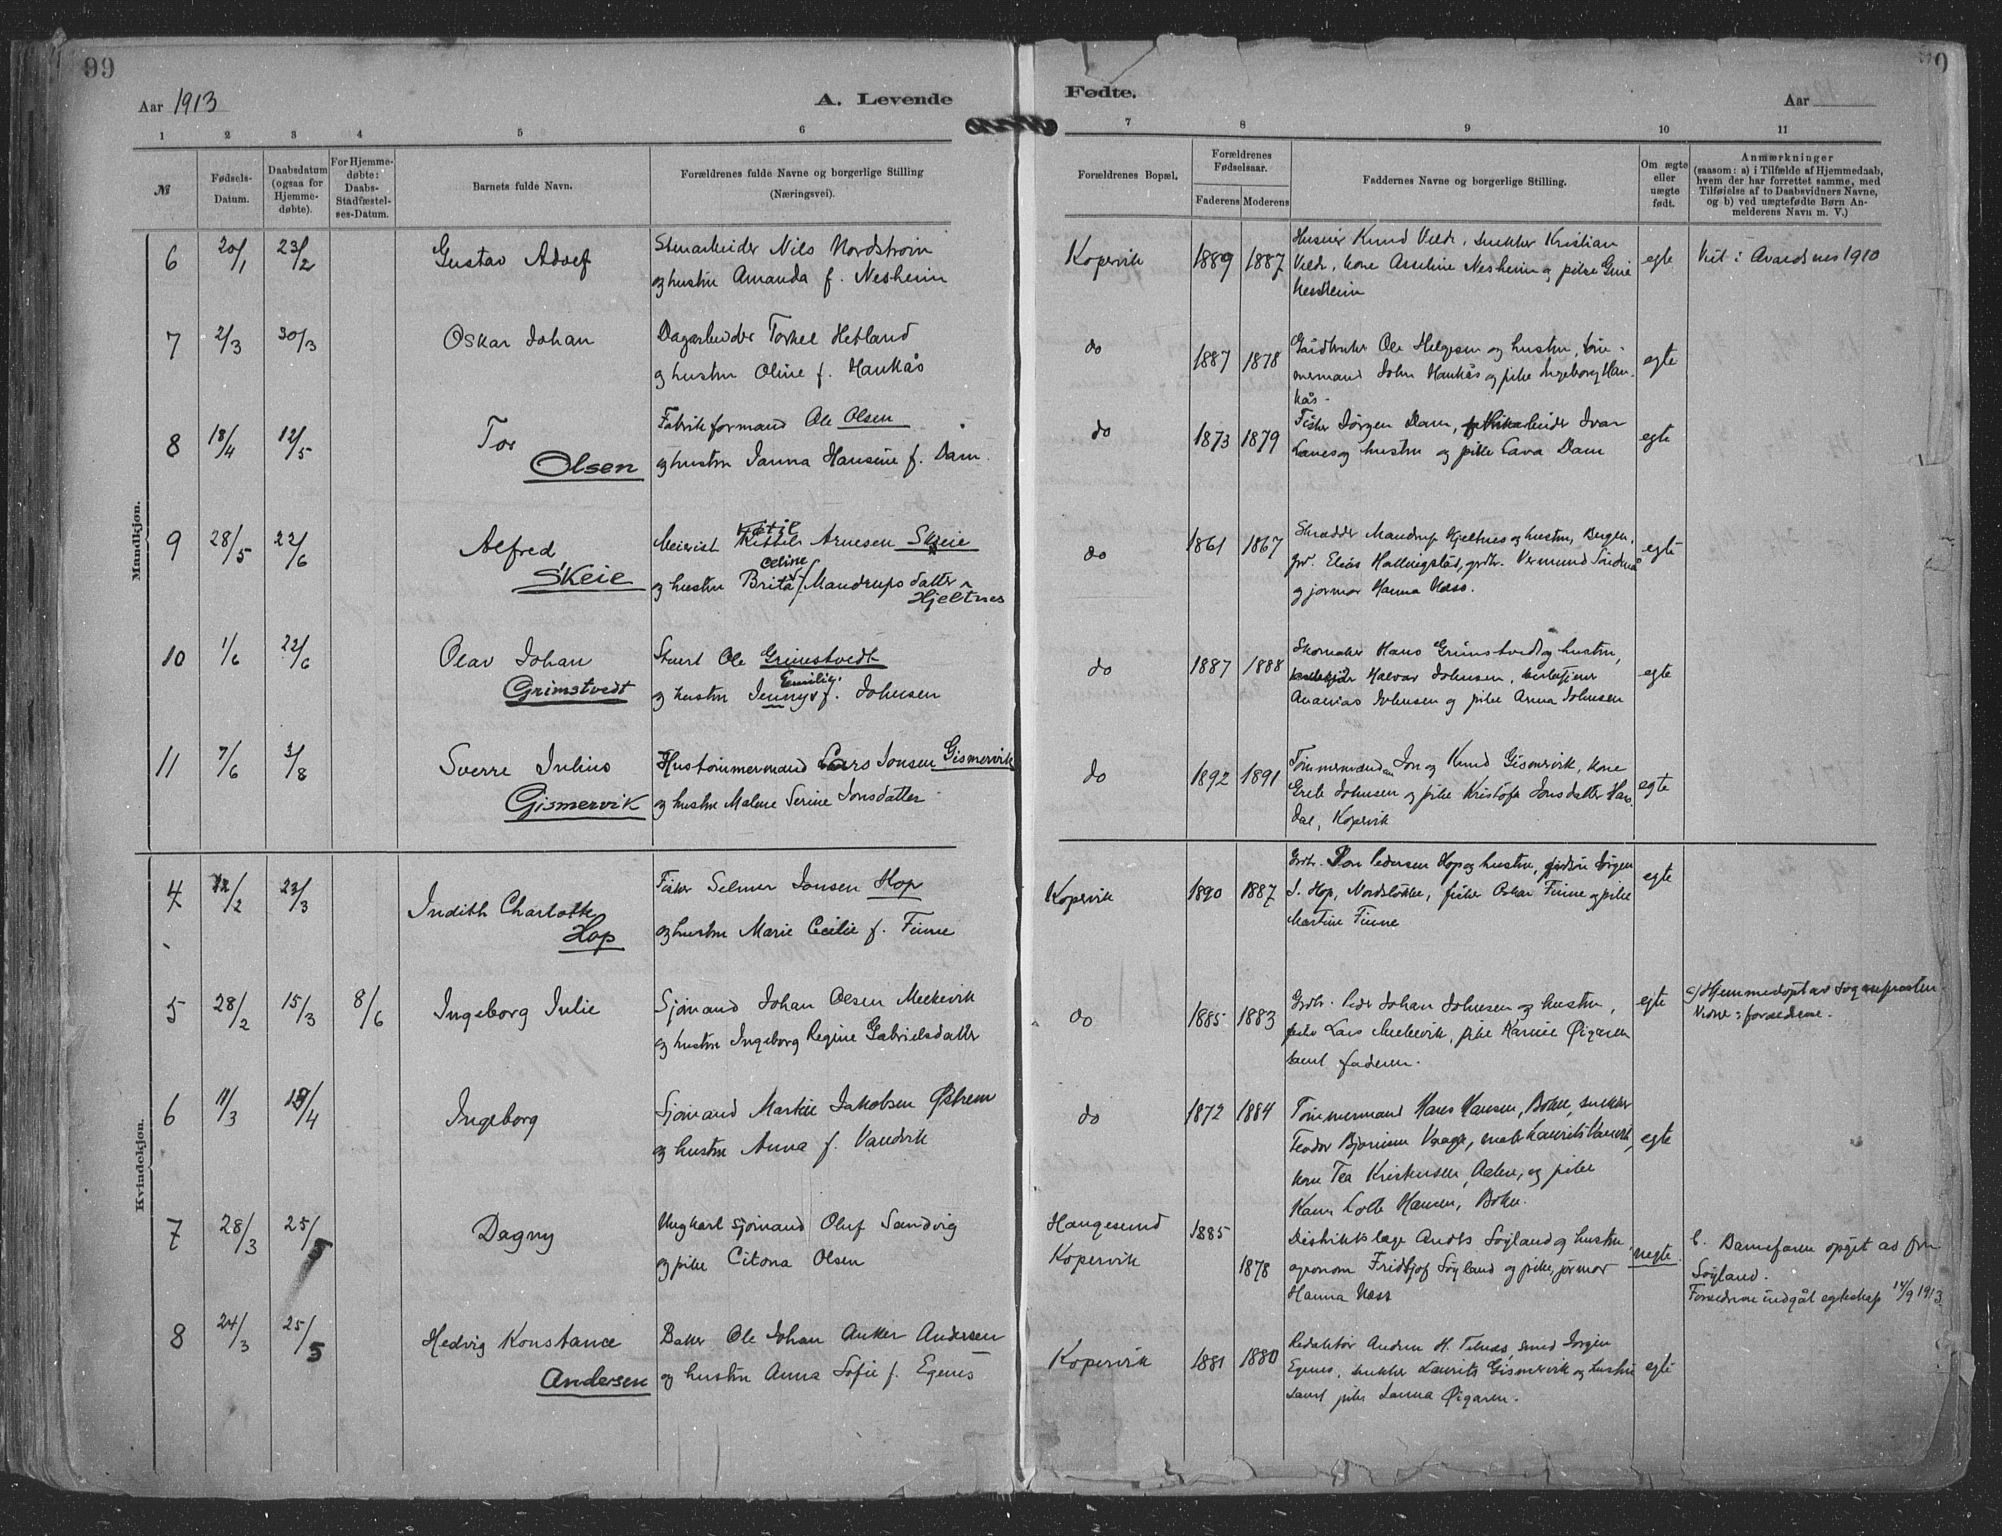 99
Aar 1913
A. Levende
Fødte.
Aar
1 2 3 4 5 6 7 8 9 10 11
№
Fødsels-
Datum.
Daabsdatum
(ogsaa for
Hjemme-
døbte).
For Hjemme-
døbte:
Daabs-
Stadfæstel-
ses-Datum.
Barnets fulde Navn.
Forældrenes fulde Navne og borgerlige Stilling
(Næringsvei).
Forældrenes Bopæl.
Forældrenes
Fødselsaar.
Faderens Moderens
Faddernes Navne og borgerlige Stilling.
Om ægte
eller
uægte
født.
Anmærkninger
(saasom: a) i Tilfælde af Hjemmedaab,
hvem der har forrettet samme, med
Tilføielse af to Daabsvidners Navne,
og b) ved uægtefødte Børn An-
melderens Navn m. V.)
Mandkjøn.
6 20/1 23/2
Gustav Adolf
Stenarbeider Nils Nordstrøm
og hustru Amanda f. Nesheim
Kopervik
1889 1887
Knud Velde, snekker Kristian
Velde, kone Asseline Nesheim og pike
Nesheim
egte
Viet i Avaldsnes 1910
7 2/3 30/3
Oskar Johan
Dagarbeider Torkel Hetland
og hustru Oline f. Haukås
do
1887 1878
Gårdbruker Ole Helgesen og hustru, tøm-
mermand John Haukås og pike Ingeborg Hau-
kås.
egte
8 18/4 12/5
Tor
Olsen
Fabrikformand Ole Olsen
og hustru Janna Hansine f. Dam.
do
1873 1879
Fisker Jørgen Dam, Ivar
og hustru og pike Lava Dam
egte
9 28/5 22/6
Alfred
Skeie
Ketil
Meierist Arnesen Skeie
Celine
og hustru Brita Mandrupsdatter
Hjeltnes
do
1861 1867
Skrædder Mandrup Hjeltnes og hustru, Bergen,
gbr. Elias Hallingstad, grdbr. Vermund
og jormor Hanna Næss.
egte
10 1/6 22/6
Olav Johan
Grimstvedt
Stuert Ole Grimstvedt
Emilie
og hustru Jenny f. Johnsen
do
1887 1888
Skomaker Hans Grimstvedt og hustru,
Halvar Johnsen,
Ananias Johnsen og pike Anna Johnsen
egte
11 7/6 3/8
Sverre Julius
Gismervik
Hustømmermand Lars Jonsen Gismervik
og hustru Malene Serine Jonsdatter
do
1892 1891
Tømmermand Jon og Knud Gismervik, kone
Grete Johnsen og pike Kristofa Jonsdatter
Kopervik
egte
Kvindekjøn.
4 /2 23/3
Judith Charlotte
Hop
Fisker Selmer Jonsen Hop
og hustru Marie Cecilie f. Finne
Kopervik
1890 1887
Grdbr. Jon Pedersen Hop og hustru, Jørgen
J. Hop, fisker Oskar Finne og pike
Martine Finne
egte
5 28/2 15/3 8/6
Ingeborg Julie
Sjømand Johan Olsen Mekevik
og hustru Ingeborg Regine Gabrielsdatter
do
1885 1883
Grdbr. Peder Johan Johnsen og hustru,
Lars Mekevik, pike Karine Øigaren
samt faderen.
egte
a/ Hjemmedøpt av sogneprosten.
Vidne: forældrene.
6 11/3 /4
Ingeborg
Sjømand Jakobsen Østrem
og hustru Anna f. Vandvik
do
1872 1884
Tømmermand Hans Hansen, Bokn, snekker
Teodor Bjørnsen Vaage,
kone Tea Kristensen, og pike
Hansen, Bokn.
egte
7 28/3 25/5
Dagny
Ungkarl sjømand Oluf Sandvig
og pike Citona Olsen
Haugesund
Kopervik
1885
1878
Distriktslæge Søyland og hustru
agronom Fridtjof Søyland og pike, jormor
Hanna Næss
uegte
b. Barnefaren opgit av fru
Søyland.
Forældrene indgåt egteskap 14/9 1913
8 24/3 25/5
Hedvig Konstance
Andersen
Baker Ole Johan Anker Andersen
og hustru Anna Sofie f. Egenes
Kopervik
1881 1880
Redaktør H. Telnes, smed Jørgen
Egenes, snekker Laurits Gismervik og hustru
samt pike Janna Øigaren.
egte